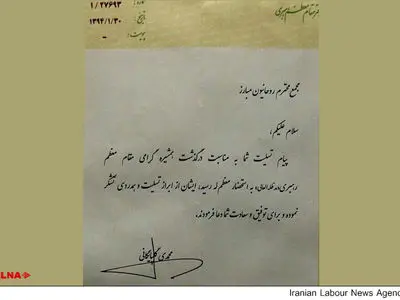 دفتر مقام معظم رهبری
شماره: ۱/۲۷۶۹۳
تاریخ: ۱۳۹۴/۱/۳۰
پیوست: -
مجمع محترم روحانیون مبارز
سلام علیکم؛
پیام تسلیت شما به مناسبت درگذشت همشیره گرامی مقام معظم
رهبری(مدظله‌العالی)، به استحضار معظم‌له رسید، ایشان از ابراز تسلیت و همدردی تشکر
نموده و برای توفیق و سعادت شما دعا فرمودند.
محمدی گلپایگانی
LNA
Iranian Labour News Agenc